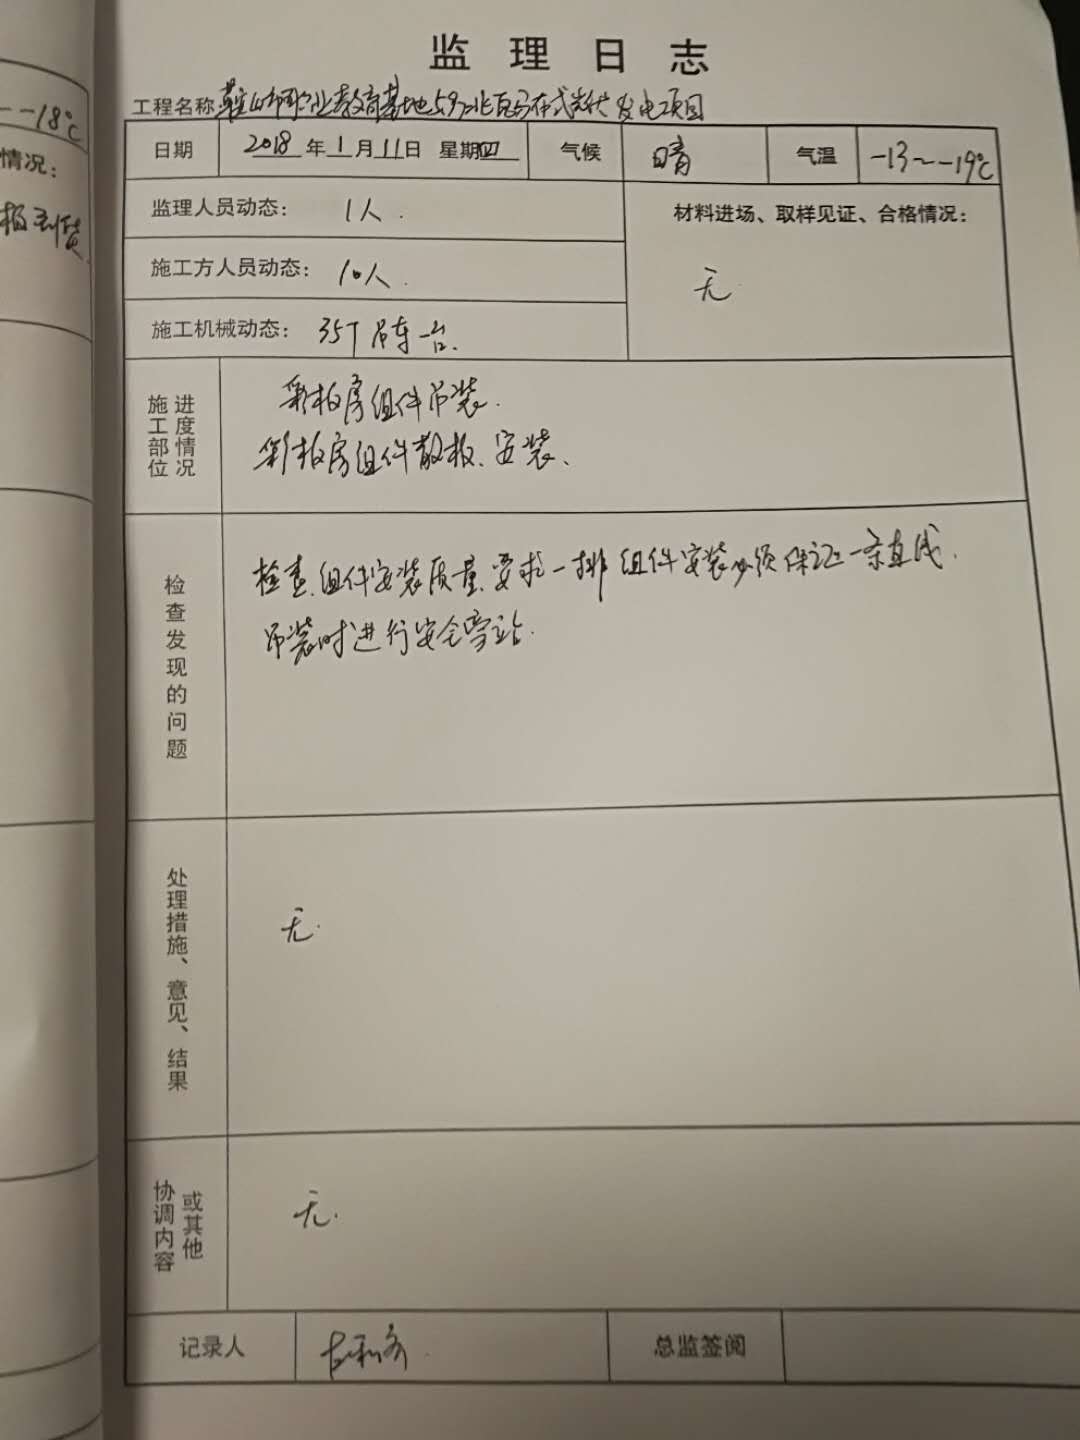 监理日志
工程名称 鞍山市职业教育基地5.9兆瓦分布式光伏发电项目
日期 2018年1月11日 星期四 气候 晴 气温 -13~-19℃
监理人员动态： 1人.
材料进场、取样见证、合格情况：
无
施工方人员动态： 10人.
施工机械动态： 35T吊车一台.
施工部位
进度情况
彩板房组件吊装.
彩板房组件散板、安装、
检查发现的问题
检查组件安装质量,要求一排组件安装必须保证一条直线.
吊装时进行安全旁站.
处理措施、意见、结果
无.
协调内容
或其他
无.
记录人
总监签阅
~-18℃
情况：
板到货.